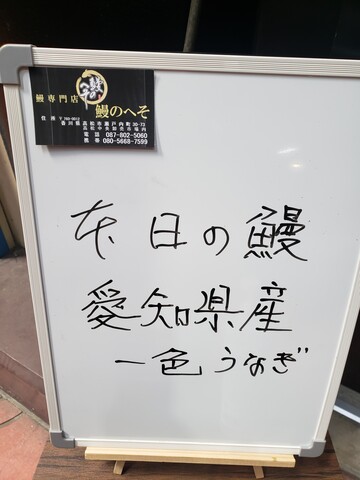 鰻専門店
鰻のへそ
住所 〒760-0012
香川県高松市瀬戸内町30-72
高松市食卸売市場内
電話 087-802-5060
携帯 080-5668-7599
本日の鰻
愛知県産
一色うなぎ